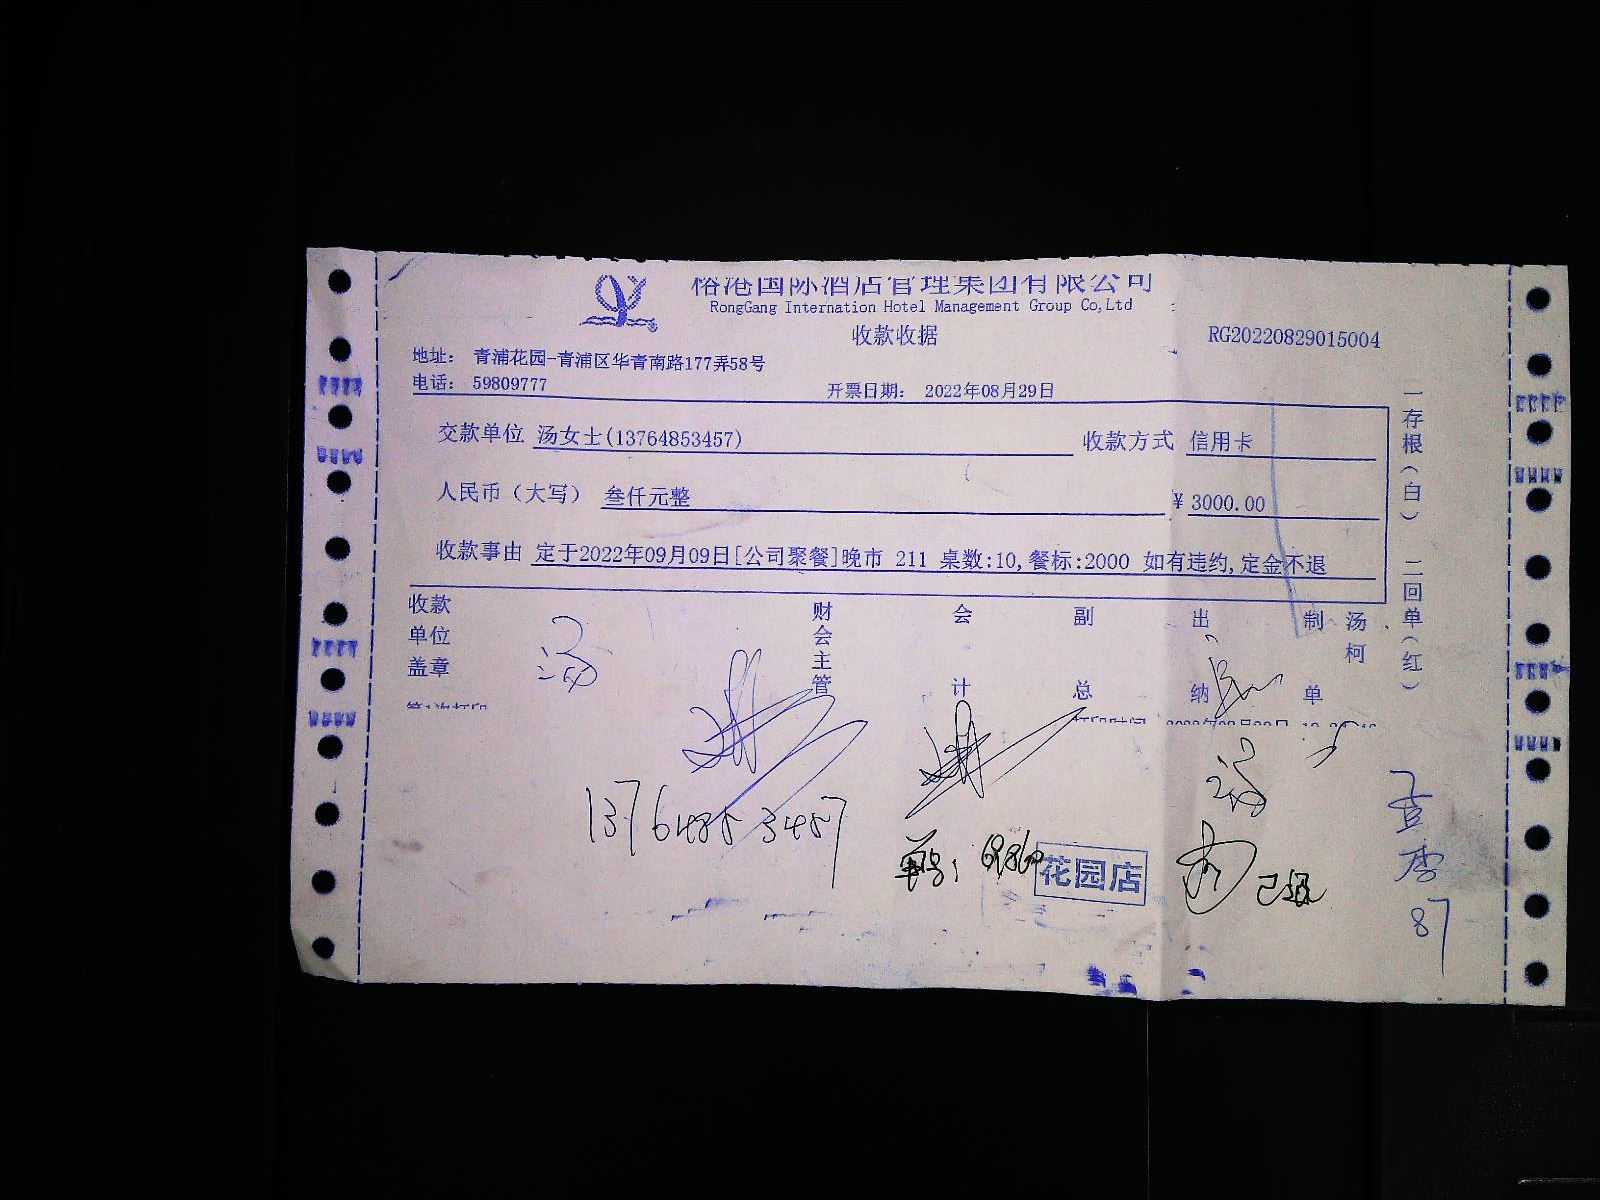 榕港国际酒店管理集团有限公司
RongGang Internation Hotel Management Group Co,Ltd
收款收据
RG20220829015004
地址： 青浦花园-青浦区华青南路177弄58号
电话： 59809777
开票日期： 2022年08月29日
交款单位 汤女士(13764853457)
收款方式 信用卡
人民币（大写） 叁仟元整
¥ 3000.00
收款事由 定于2022年09月09日[公司聚餐]晚市 211 桌数:10,餐标:2000 如有违约,定金不退
一存根（白） 二回单（红）
收款单位盖章
财会主管
会计
副总
出纳
制单
汤柯
汤
13764853457
单号:
花园店
87